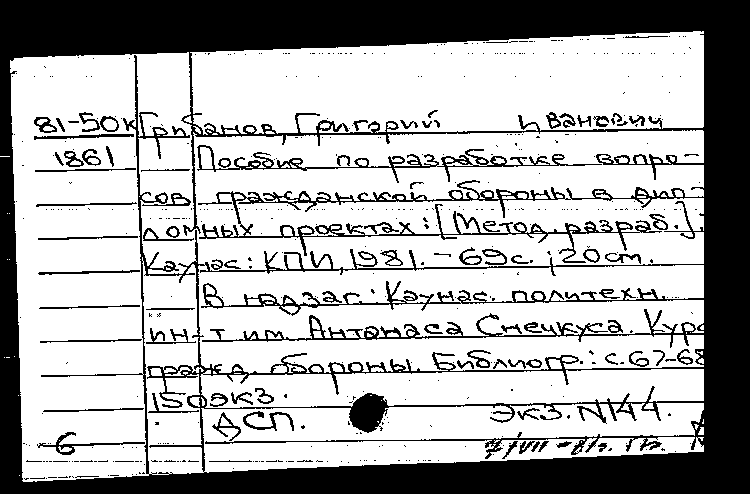 81-50к Грибанов, Григорий Иванович
1861 Пособие по разработке вопро-
сов гражданской обороны в дип-
ломных проектах: [Метод. разраб.].
Каунас: КПИ, 1981. - 69 с.; 20 см.
В надзаг.: Каунас. политехн.
ин-т им. Антанаса Снечкуса. Курс
гражд. обороны. Библиогр.: с. 67-68
150 экз.
ДСП. Экз. N144.
6